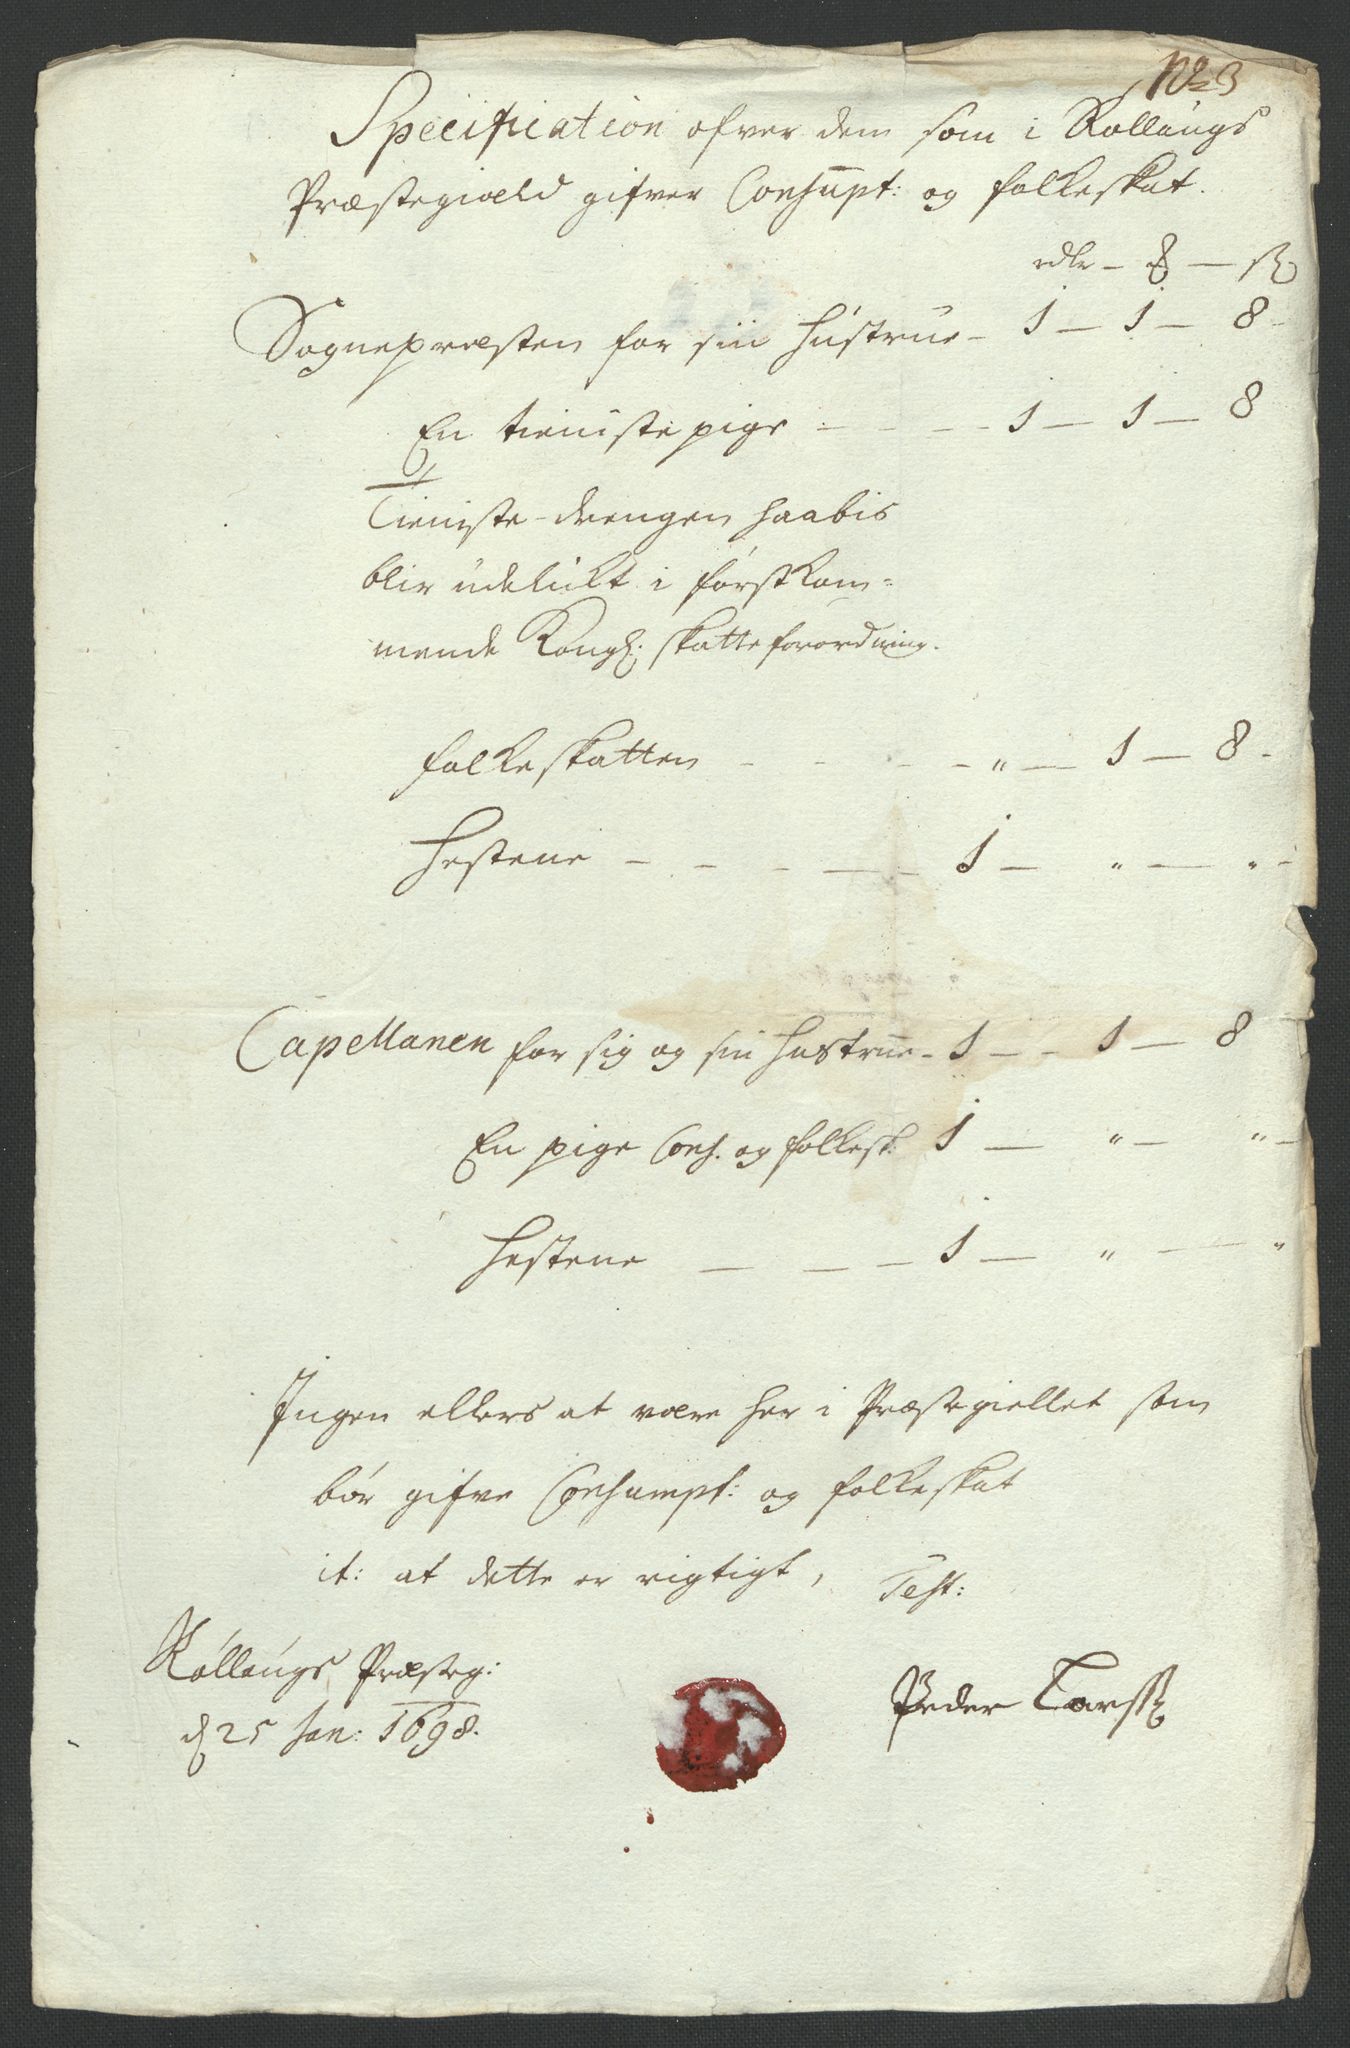 No 3
Specification ofver dem som i Rollaugs
Præstegiæld gifver Consupt: og folkeskat.
rdlr - ȣ - ß
Sognepræsten for sin Hústrue - 1 - 1 - 8 -
En tieniste pige - - - - 1 - 1 - 8
Tieniste-drengen haabis
blir údeluckt i førstkom=
mende Kongl: skatte forordning.
folkeskatten - - - - " - 1 - 8 -
Hestene - - - - - 1 - " - " -
Capellanen for sig og sin Hustrue - 1 - - 1 - 8
En pige Cons. og folkesk: 1 - " - " -
Hestene - - - 1 - " - - "
Ingen ellers at være her i Præstegiellet som
bør gifve Consumpt: og folkeskat
it: at dette er rigtigt, Test:
Røllaugs Præsteg:
d 25 Jan: 1698.
Peder Larsß